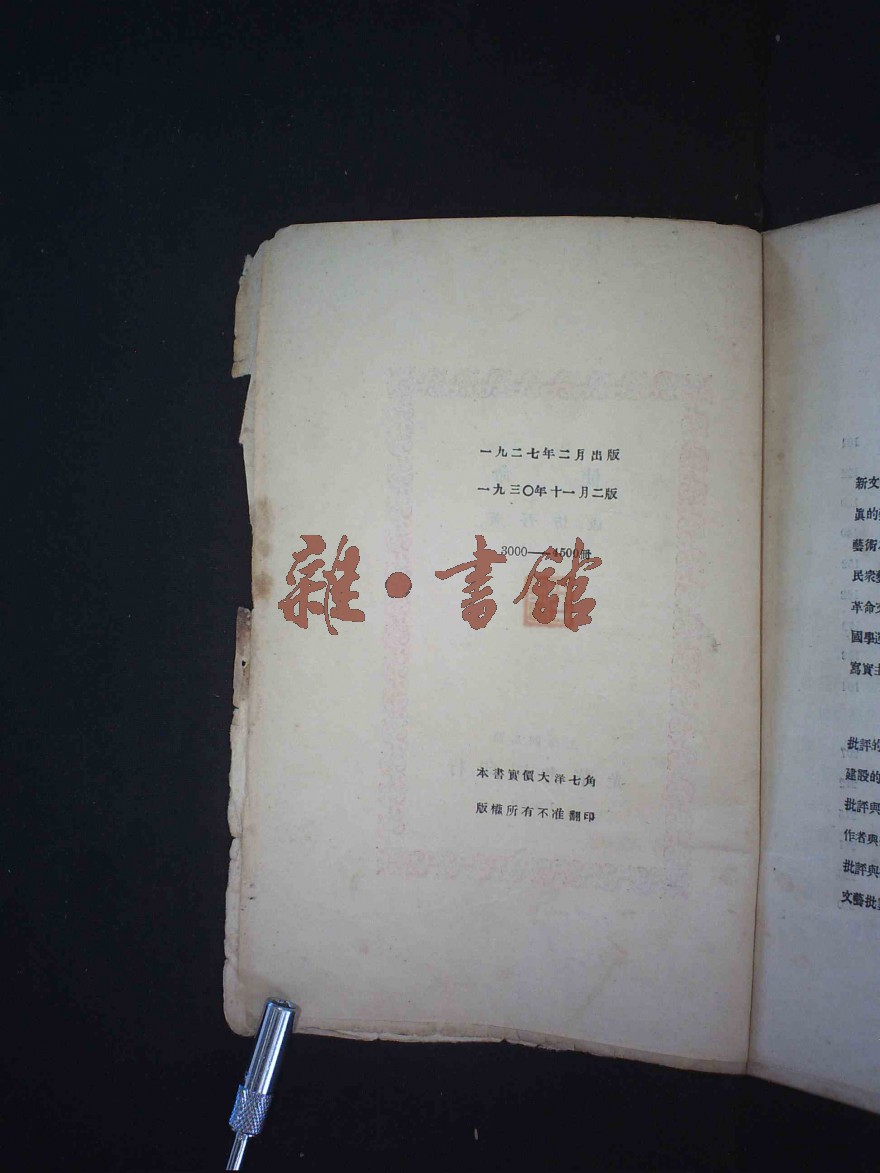 一九二七年二月出版
一九三〇年十一月二版
3000——4500冊
雜·書館
本書實價大洋七角
版權所有不准翻印
新文
眞的
藝術
民衆
革命
國學
寫實主
批評的
建設的
批評與
作者與
批評與
文藝批